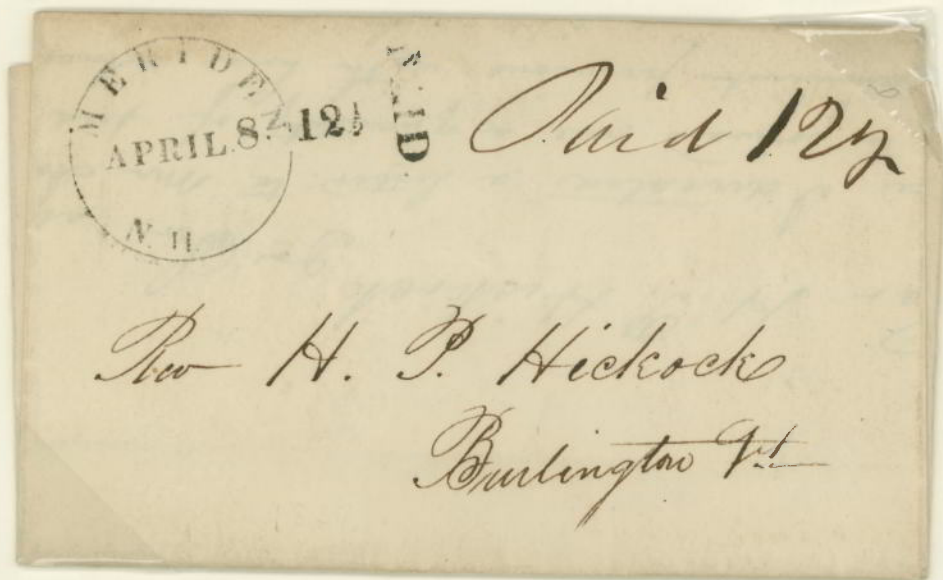 MERIDEN
APRIL 8 12½
N.H.
PAID
Paid 12½
Rev H. P. Hickock
Burlington Vt